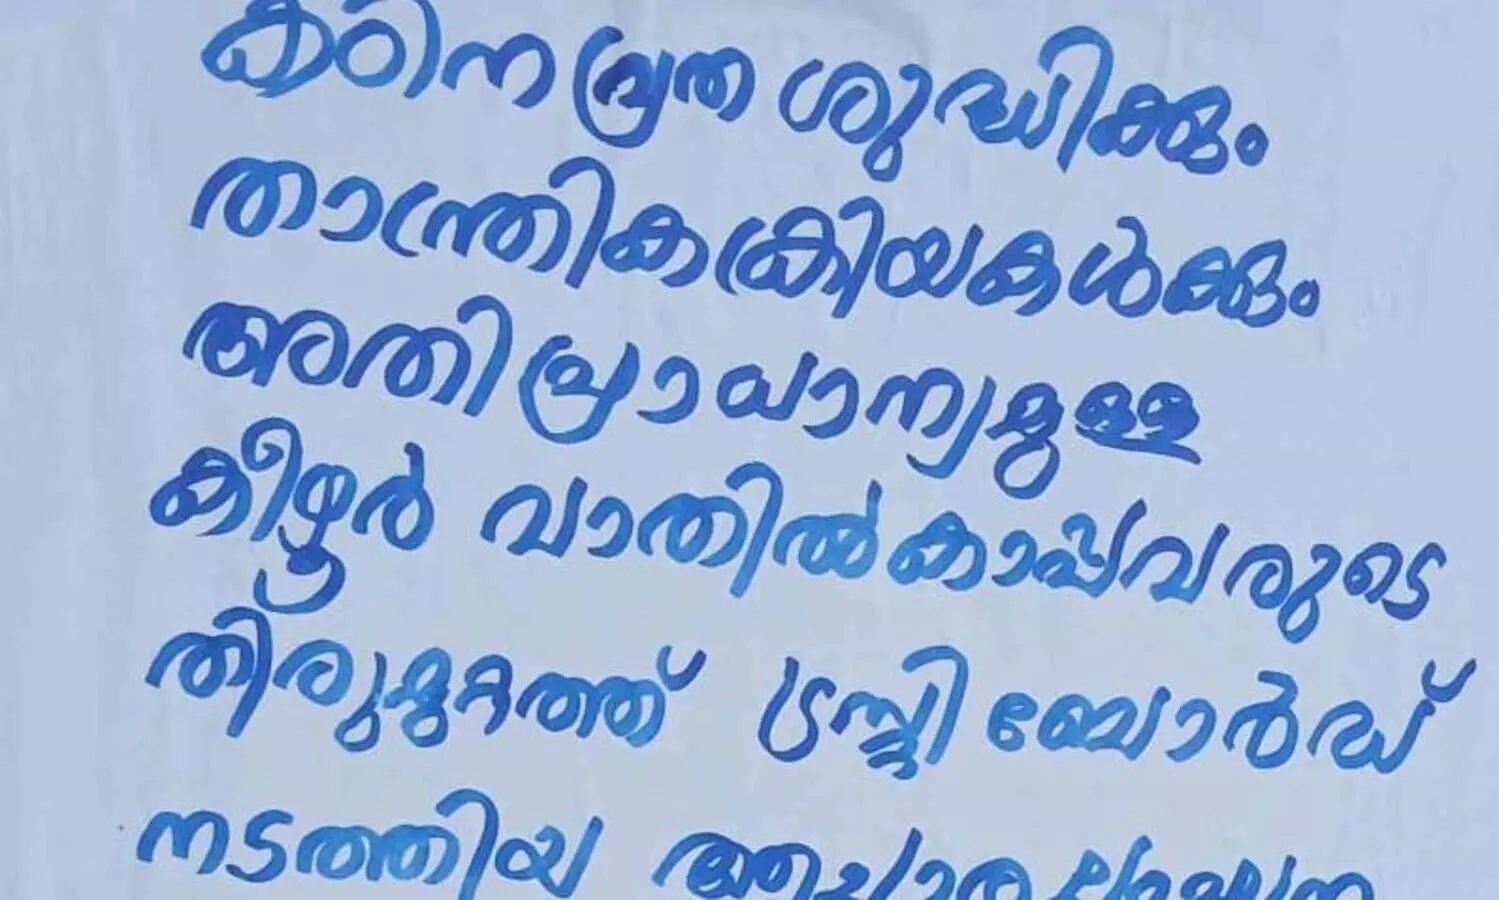 കഠിന വ്രത ശുദ്ധിക്കും
താന്ത്രികക്രിയകൾക്കും
അതിപ്രാധാന്യമുള്ള
കീഴൂർ വാതിൽകാപ്പവരുടെ
തിരുമുറ്റത്ത് ട്രസ്റ്റി ബോർഡ്
നടത്തിയ ആചാര